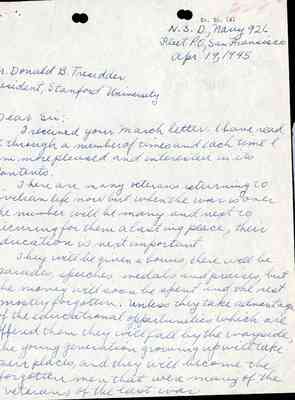 N.S.D., Navy 926
Fleet P.O., San Francisco
Apr 19, 1945
r. Donald B. Tresidder
esident, Stanford University
Dear Sir:
I received your March letter. I have read
t through a number of times and each time I
am more pleased and interested in its
contents.
There are many veterans returning to
civilian life now but when the war is over
the number will be many and next to
securing for them a lasting peace, their
education is next important.
They will be given a bonus, there will be
parades, speeches medals and praises, but
he money will soon be spent and the rest
mostly forgotten. Unless they take advantage
of the educational opportunities which are
offered them they will fall by the wayside,
he young generation growing up will take
heir places, and they will become the
forgotten men that were many of the
veterans of the last war.